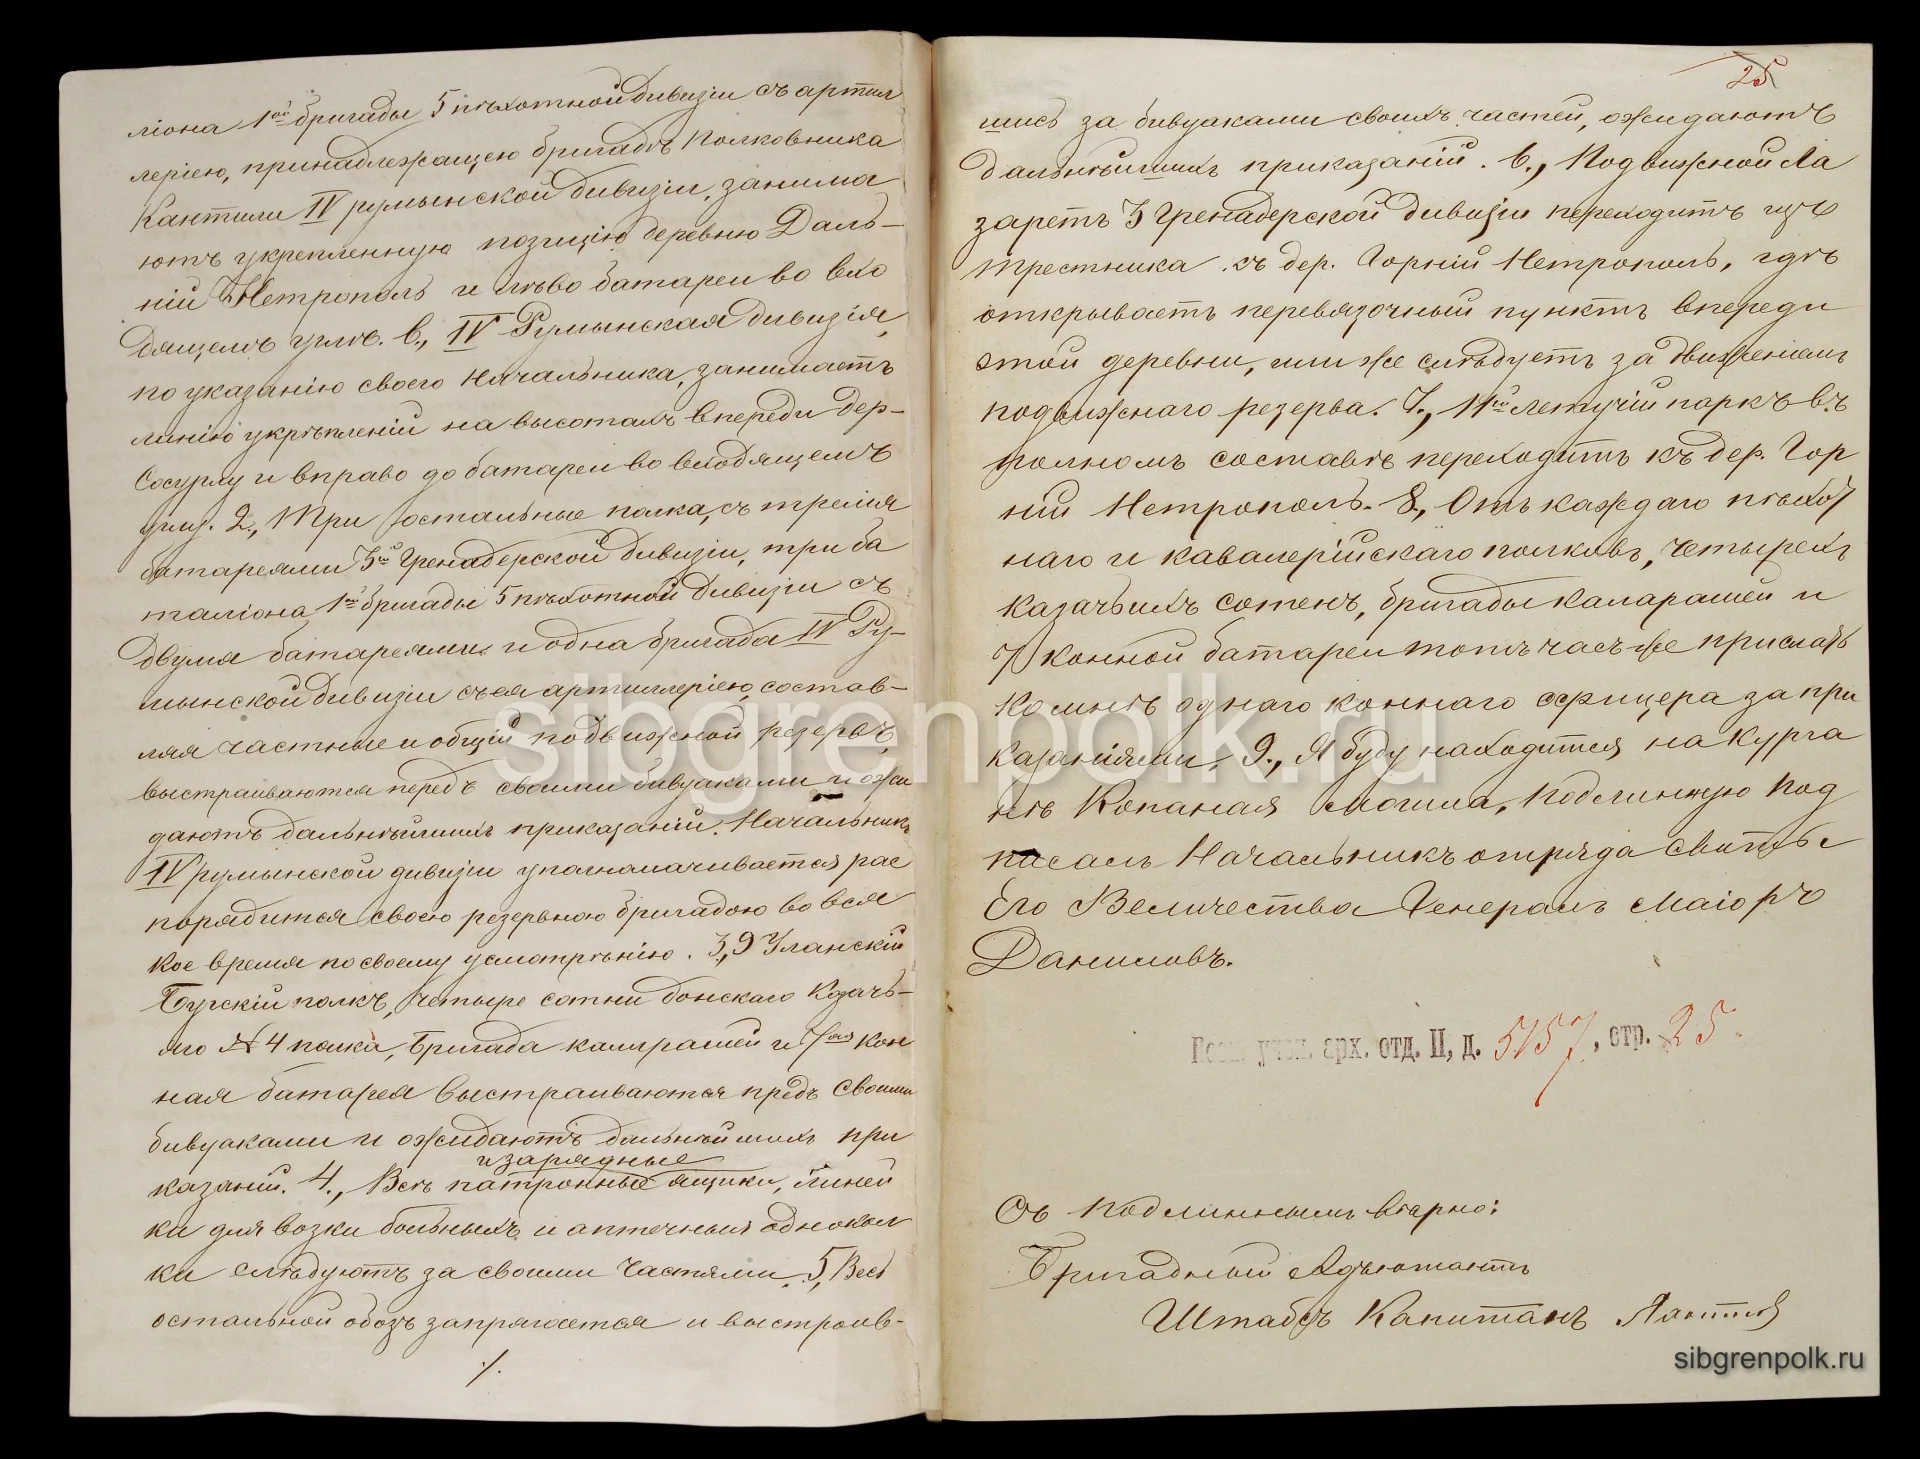 ліона 1ой бригады 5 пѣхотной дивизіи съ артил
леріею, принадлежащею бригадѣ Полковника
Кантили IV румынской дивизіи, занима
ютъ укрепленную позицію деревню Даль-
ній Нетрополь и влѣво батареи во вхо
дящемъ углѣ. в., IV Румынская дивизія,
по указанію своего Начальника, занимаетъ
линію укрѣпленій на высотахъ впереди дер-
Сосурлу и вправо до батареи во входящемъ
углу. 2., Три остальные полка, съ тремя
батареями 3ей Гренадерской дивизіи, три ба
таліона 1ой бригады 5 пѣхотной дивизіи съ
двумя батареями и одна бригада IV Ру-
мынской дивизіи съ ея артиллеріею, состав-
ляя частные и общій подвижной резервъ,
выстраиваются передъ своими бивуаками и ожи
даютъ дальнѣйшихъ приказаній. Начальникъ
IV румынской дивизіи уполномачивается рас
порядится своею резервною бригадою во вся
кое время по своему усмотрѣнію. 3., 9 Уланскій
Бугскій полкъ, четыре сотни донскаго Казачь-
яго № 4 полка, Бригада каларашей и 7ая кон
ная батарея выстраиваются предъ своими
бивуаками и ожидаютъ дальнѣйшихъ при
и зарядные
казаній. 4., Всѣ патронные ящики, линей
ки для возки больныхъ и аптечныя однокол
ки слѣдуютъ за своими частями. 5., Весь
остальной обозъ запрягается и выстроив-
./.
25
шись за бивуаками своихъ частей, ожидаютъ
дальнѣйшихъ приказаній. 6., Подвижной Ла
заретъ 3 Гренадерской дивизіи переходитъ изъ
Трестника къ дер. Горній Нетрополь, гдѣ
открываетъ перевязочный пунктъ впереди
этой деревни, или же слѣдуетъ за движеніемъ
подвижнаго резерва. 7., 11ый летучій паркъ въ
полномъ составѣ переходитъ къ дер. Гор
ній Нетрополь. 8., Отъ каждаго пѣхот
наго и кавалерійскаго полковъ, четырехъ
казачьихъ сотенъ, бригады каларашей и
7 конной батареи тотъ часъ же прислать
ко мнѣ однаго коннаго офицера за при
казаніями. 9., Я буду находится на курга
нѣ Копаная могила. Подлинную под
писалъ Начальникъ отряда Свиты
Его Величества Генералъ Маіоръ
Даниловъ.
Воен. учен. арх. отд. II, д. 5157, стр. 25.
Съ подлиннымъ вѣрно:
Бригадный Адъютантъ
Штабсъ Капитанъ
sibgrenpolk.ru
sibgrenpolk.ru